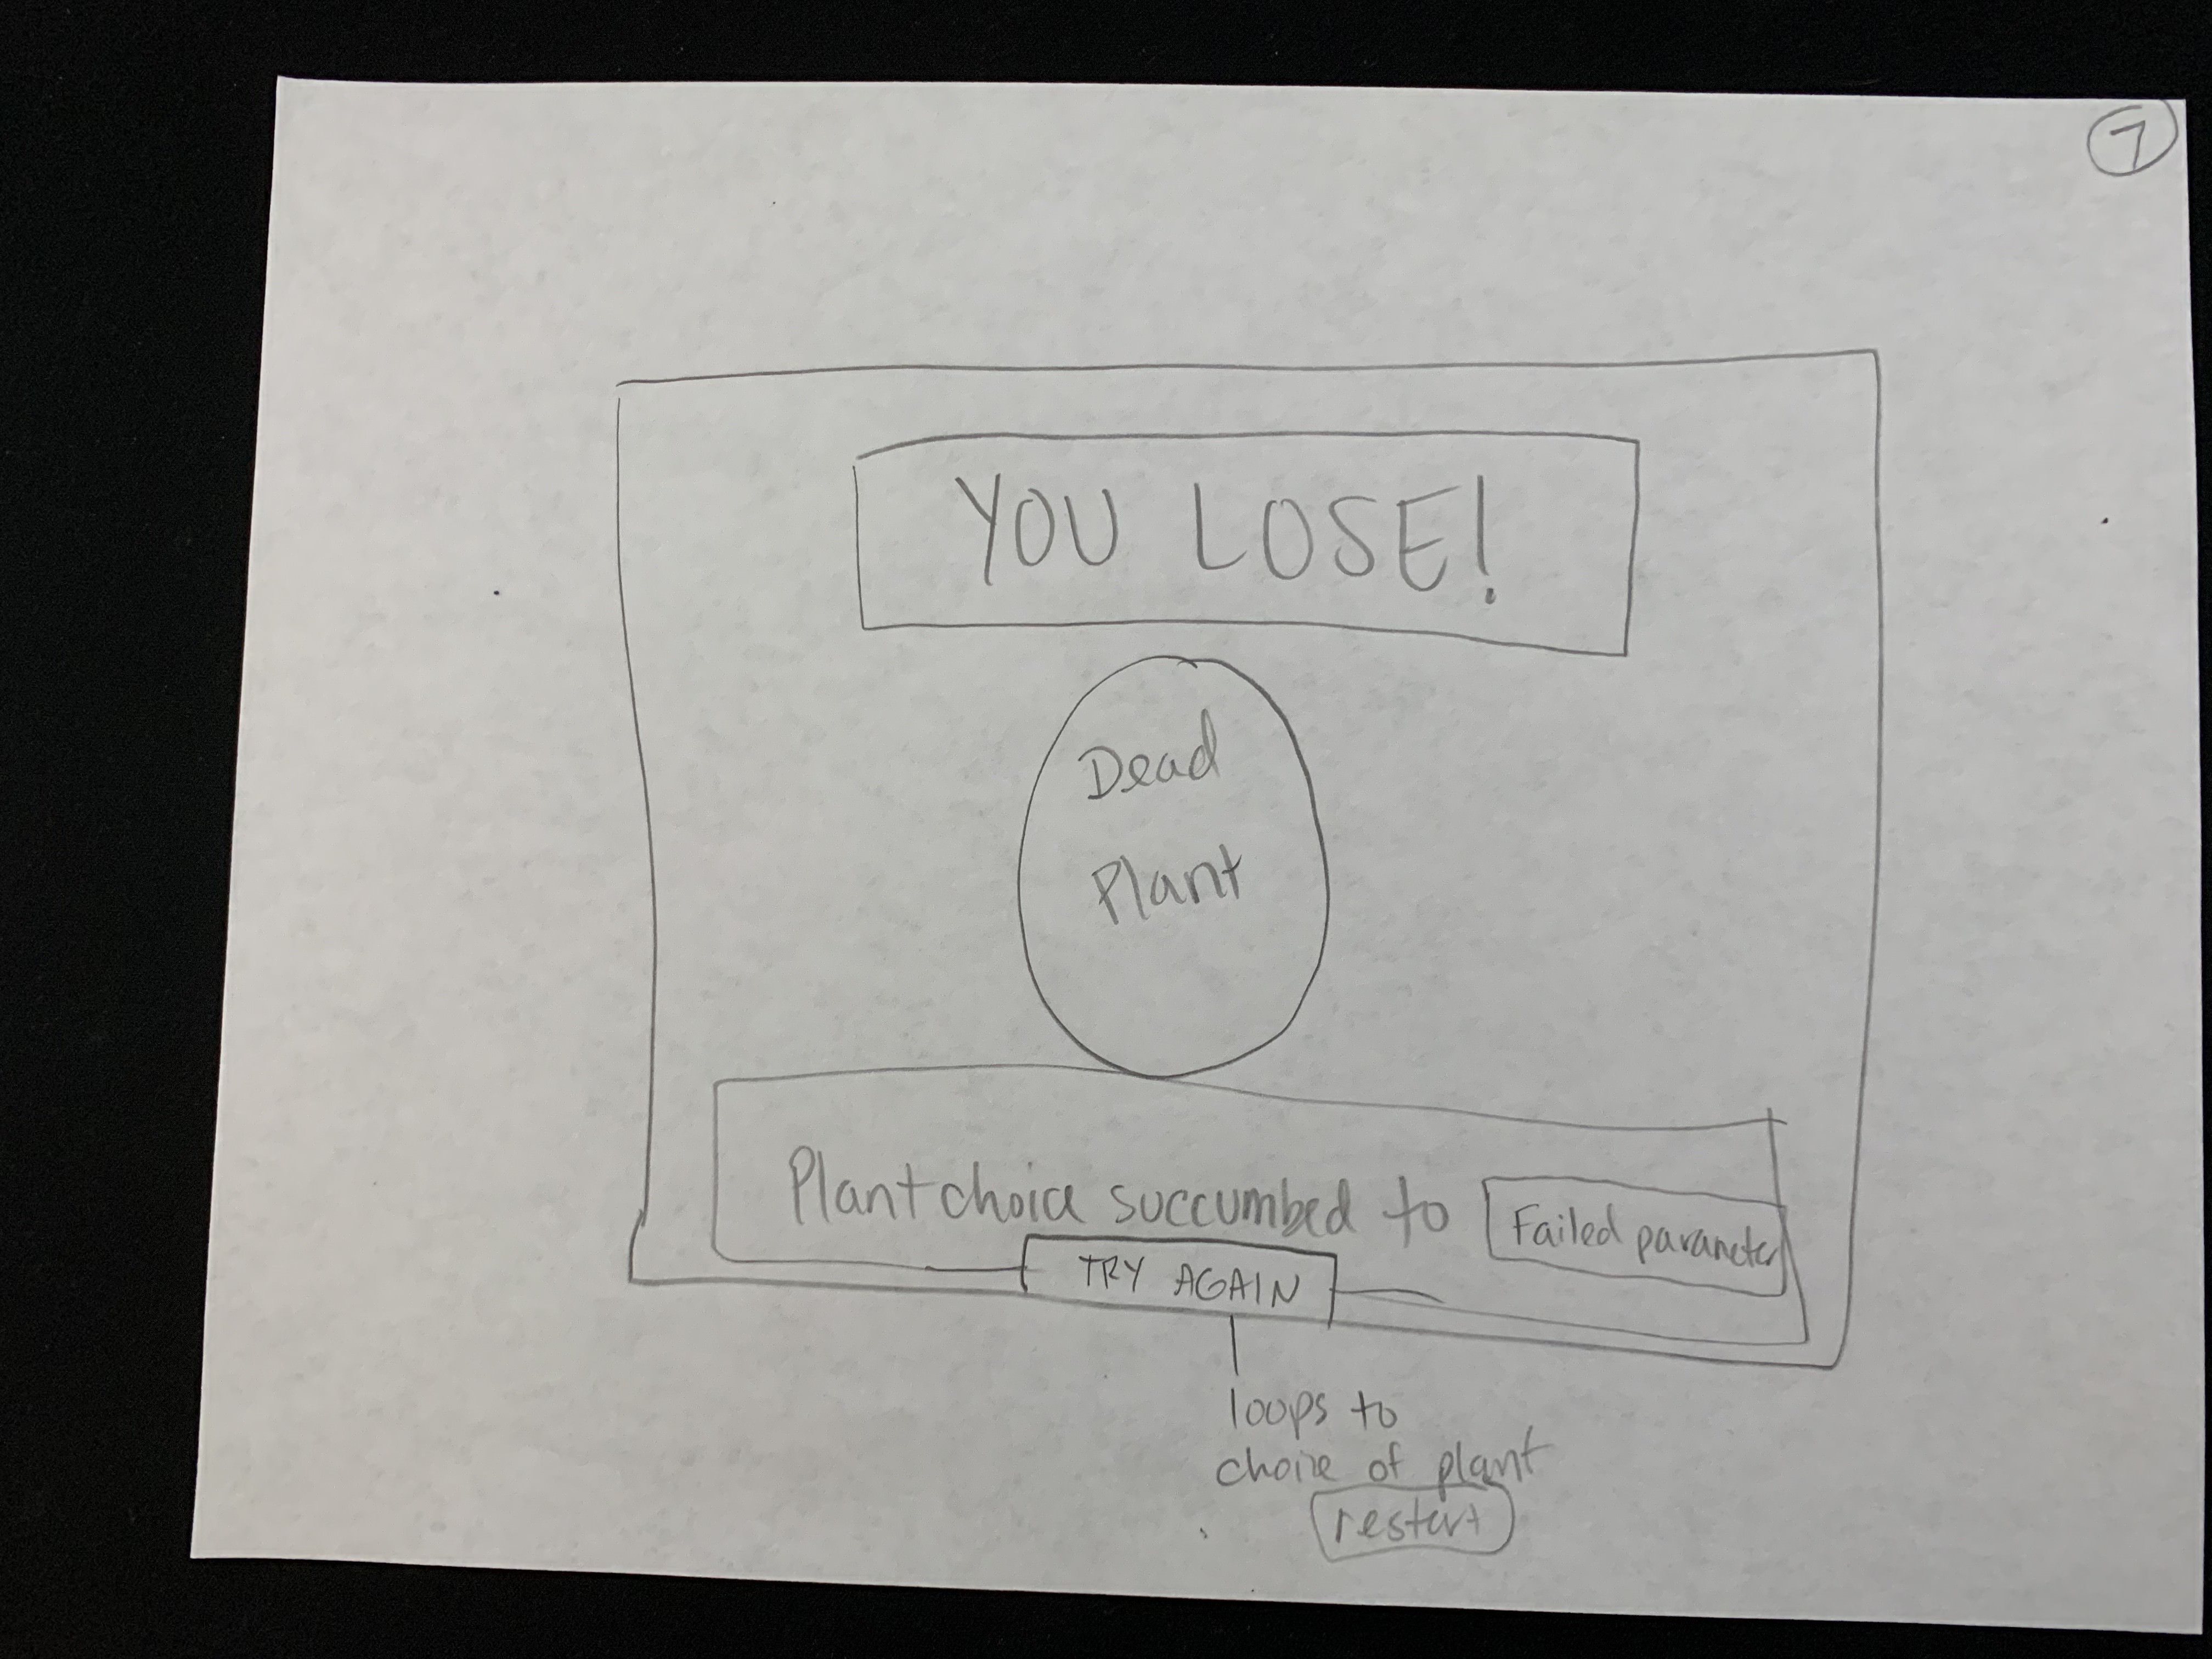 7
YOU LOSE!
Dead
Plant
Plant choice succumbed to Failed parameter
TRY AGAIN
loops to
choice of plant
restart